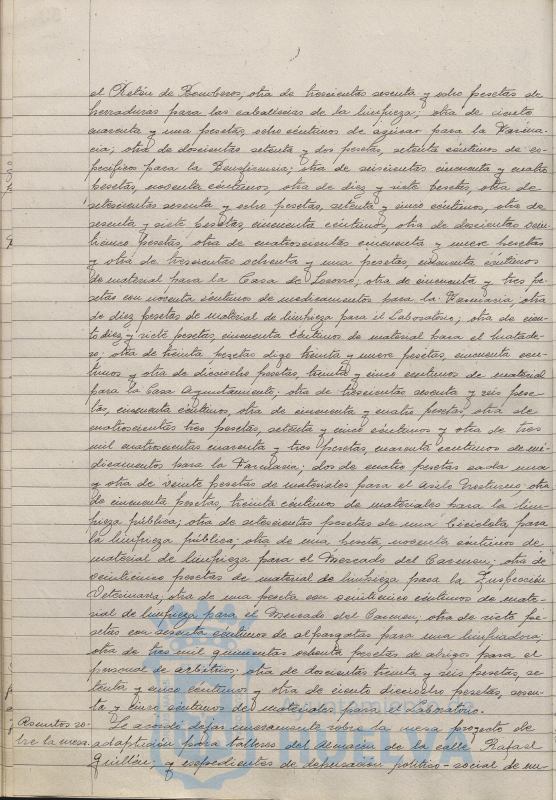 el Retén de Bomberos, otra de trescientas sesenta y ocho pesetas de
herraduras para las caballerias de la limpieza; otra de ciento
cuarenta y una pesetas, ocho céntimos de azúcar para la Farma-
cia; otra de doscientas setenta y dos pesetas, setenta céntimos de es-
pecificos para la Beneficencia; otra de seiscientas cincuenta y cuatro
pesetas, noventa céntimos, otra de diez y siete pesetas, otra de
setecientas sesenta y ocho pesetas, setenta y cinco céntimos, otra de
sesenta y siete pesetas, cincuenta céntimos, otra de doscientas vein-
ticinco pesetas, otra de cuatrocientas cincuenta y nueve pesetas
y otra de trescientas ochenta y una pesetas, cincuenta céntimos
de material para la Casa de Socorro; otra de cincuenta y tres pe-
setas con noventa céntimos de medicamentos para la Farmacia; otra
de diez pesetas de material de limpieza para el Laboratorio; otra de cien-
to diez y siete pesetas, cincuenta céntimos de material para el Matade-
ro; otra de treinta pesetas digo treinta y nueve pesetas, cincuenta cén-
timos y otra de dieciocho pesetas, treinta y cinco céntimos de material
para la Casa Ayuntamiento; otra de trescientas sesenta y seis pese-
tas, cincuenta céntimos, otra de cincuenta y cuatro pesetas, otra de
cuatrocientas tres pesetas, setenta y cinco céntimos y otra de tres
mil cuatrocientas cuarenta y tres pesetas, cuarenta céntimos de me-
dicamentos para la Farmacia; dos de cuatro pesetas cada una
y otra de veinte pesetas de materiales para el Asilo Nocturno; otra
de cincuenta pesetas, treinta céntimos de materiales para la lim-
pieza pública; otra de setecientas pesetas de una bicicleta para
la limpieza pública; otra de una peseta, noventa céntimos de
material de limpieza para el Mercado del Carmen; otra de
veinticinco pesetas de material de limpieza para la Inspección
Veterinaria; otra de una peseta con veinticinco céntimos de mate-
rial de limpieza para el Mercado del Carmen; otra de siete pe-
setas con sesenta céntimos de alpargatas para una limpiadora;
otra de tres mil quinientas ochenta pesetas de abrigos para el
personal de arbitrios; otra de doscientas treinta y seis pesetas, se-
tenta y cinco céntimos y otra de ciento dieciocho pesetas, sesen-
ta y cinco céntimos de materiales para el Laboratorio.
Asuntos so-
bre la mesa.
Se acordó dejar nuevamente sobre la mesa proyecto de
adaptación para talleres del Almacén de la calle Rafael
Guillén, y expedientes de depuración politico-social de nu-